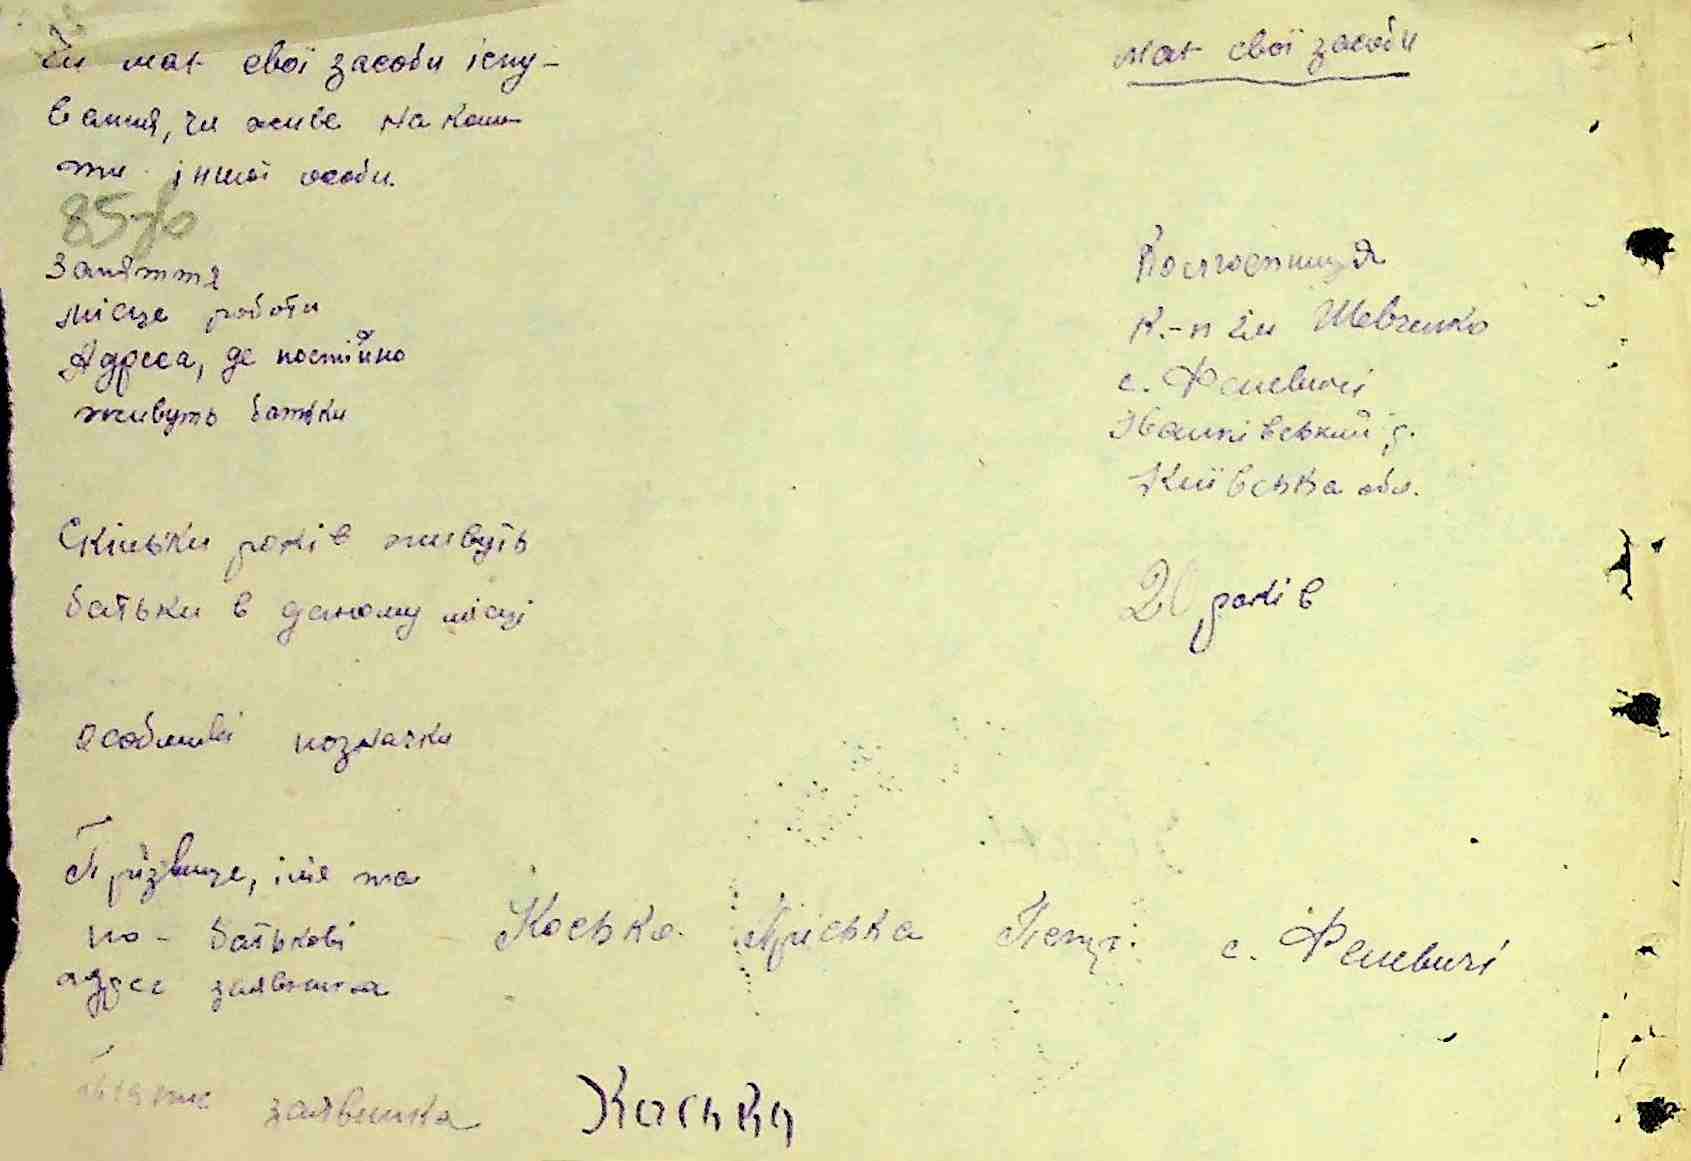 Чи має свої засоби існу- має свої засоби
вання, чи живе на кош-
ти іншої особи.
Заняття Колгоспниця
місце роботи К.-п ім Шевченко
Адреса, де постійно с. Феневичі
живуть батьки Іванківський р.
Київська обл.
Скільки років живуть
батьки в даному місці 20 років
Особливі позначки
Прізвище, імя та
по-батькові Коська с. Феневичі
адрес заявника
заявника Коська